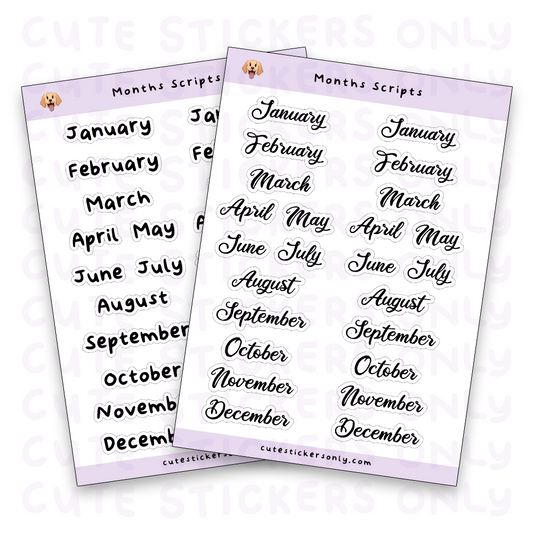 CUTE STICKERS ONLY
Months Scripts
January
Ja
February
Fe
March
April May
June July
August
September
October
Novemb
Decem
Months Scripts
January January
February February
March March
April May April May
June July June July
August August
September September
October October
November November
December December
cutestickersonly.com
cutestickersonly.com
CUTE STICKERS ONLY